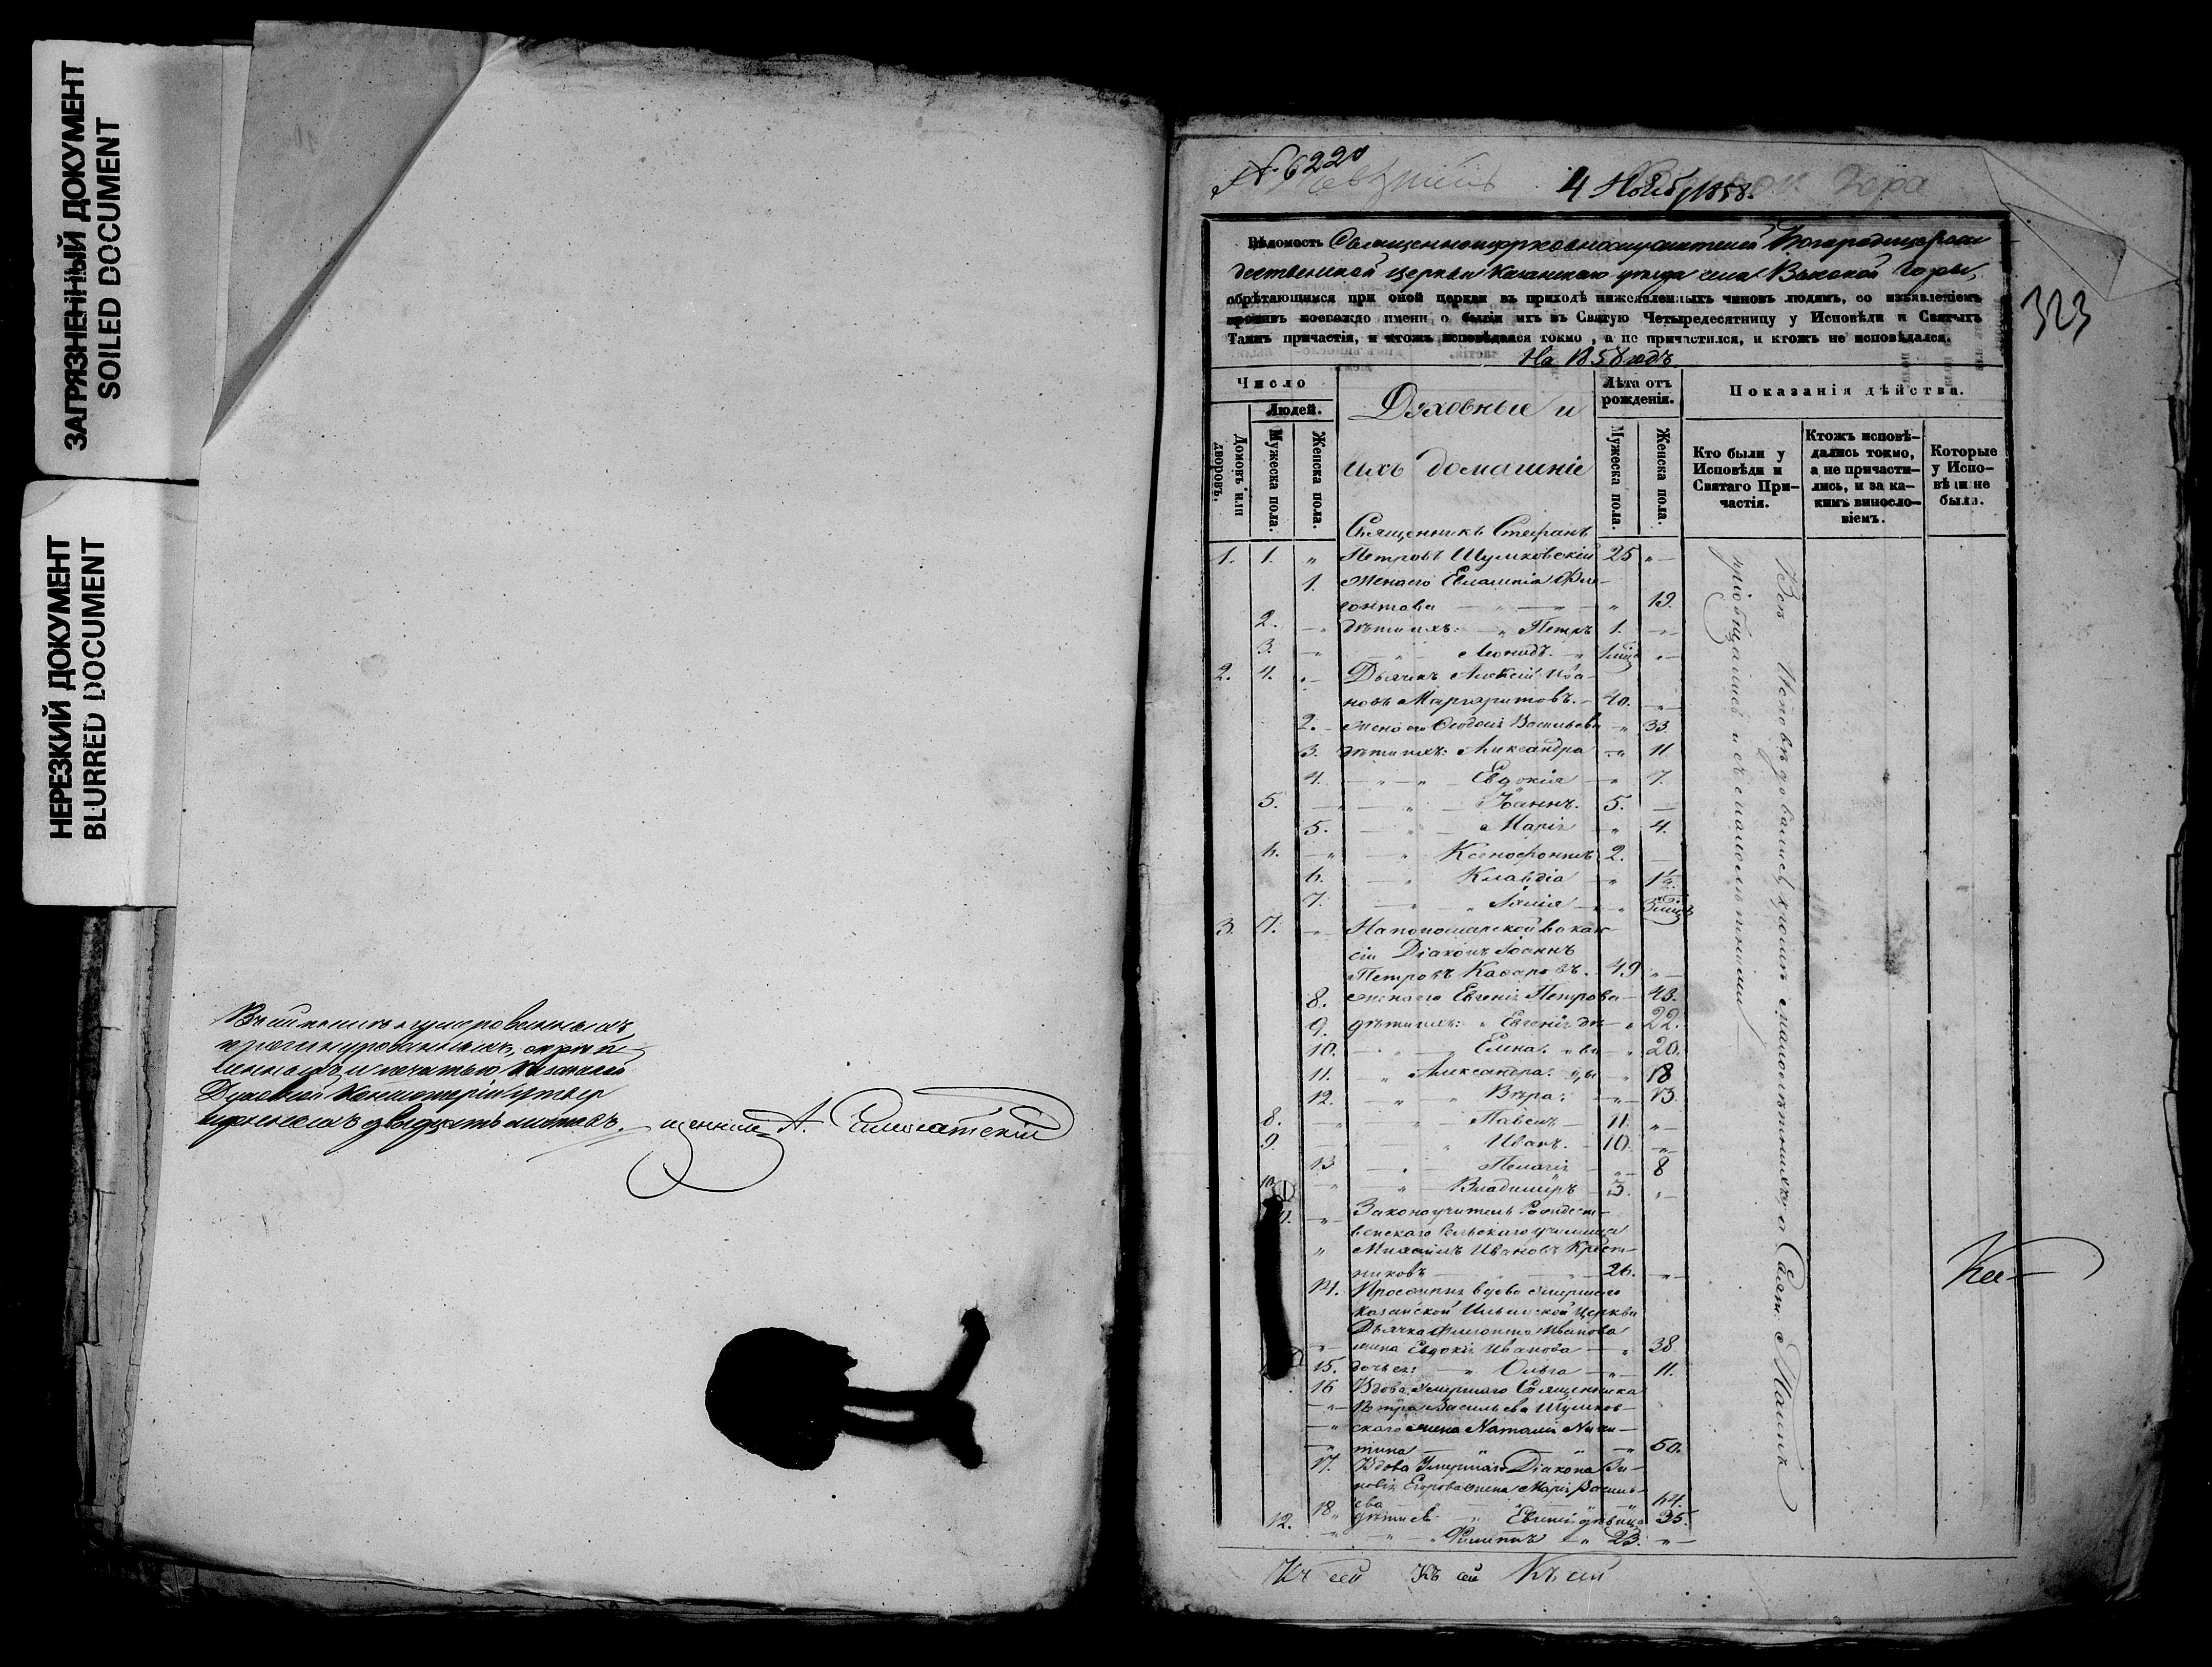 ЗАГРЯЗНЕННЫЙ ДОКУМЕНТ
SOILED DOCUMENT
НЕРЕЗКИЙ ДОКУМЕНТ
BLURRED DOCUMENT
печатью Казанской
Духовной Консисторіи
двадцать листахъ.
А.
№ 6220
4 Нояб. 1858.
323
Вѣдомость Священноцерковнослужителей Богородицерож
дественской церкви Казанскаго уѣзда села Высокой Горы,
обрѣтающимся при оной церкви въ приходѣ нижеявленныхъ чиновъ людямъ, со изъявленіемъ
противъ коегаждо имени о бытіи ихъ въ Святую Четыредесятницу у Исповѣди и Святыхъ
Таинъ причастія, и ктожъ исповѣдался токмо, а не причастился, и ктожъ не исповѣдался.
На 1858 годъ
Число
Людей.
Домовъ или дворовъ.
Мужеска пола.
Женска пола.
Духовные и
ихъ домашніе
Лѣта отъ рожденія.
Мужеска пола.
Женска пола.
Показанія дѣйства.
Кто были у Исповѣди и Святаго При-частія.
Ктожъ исповѣ-дались токмо, а не причасти-лись, и за ка-кимъ винносло-віемъ.
Которые у Испо-вѣди не были.
Священникъ Стефанъ
1. 1. „ Петровъ Шумковскій 25 „
1. жена его Евлампія Фле-
гонтова „ 19.
2. „ дѣти ихъ: „ Петръ 1. „
3. „ Леонидъ. „ 1 мѣс. „
2. 4. „ Дьячекъ Алексій Ива-
новъ Маргаритовъ. 40. „
2. жена его Ѳеодосія Васильева „ 33.
3. дѣти ихъ: Александра „ 11
4. „ „ Евдокія „ 7.
5. „ „ Іоаннъ. 5.
5. „ Марія „ 4.
6. „ „ Ксенофонтъ 2.
6. „ Клавдія „ 1½
7. „ „ Анна „ 3 мѣс.
3. 7. „ На пономарской вакан-
сіи Діаконъ Іоаннъ
Петровъ 49 „
8. жена его Евгенія Петрова 43.
9. дѣти ихъ: „ Евгенія „ 22.
10. „ „ Елена. „ 20.
11. „ Александра. „ 18
12. „ „ Вѣра: „ 13.
8. „ „ Павелъ 11. „
9. „ Иванъ. 10. „
13. „ Пелагія „ 8
10. „ „ Владиміръ 3. „
11. „ Законоучитель Рождест-
венскаго Сельскаго училища
„ Михаилъ Ивановъ Крест-
никовъ 26. „
14. Просвирня вдова умершаго
Казанской церкви
Дьячка Флегонта Иванова
„ жена Евдокія Иванова „ 38
15. дочь ея: „ Ольга „ 11.
16 Вдова умершаго Священника
„ Петра Васильева Шумков-
„ скаго жена Наталія Ники-
„ тина „ 50.
17. Вдова умершаго Діакона Зи-
новія Егорова жена Марія Василь-
ева „ 64.
18 „ дѣти ея: „ Евгенія дѣвица 35.
12. „ „ Филиппъ „ 23. „
Всѣ Исповѣдовались, кромѣ малолѣтнихъ, а Свят. Таинъ
пріобщались и съ малолѣтними
Къ сей Къ сей Къ сей